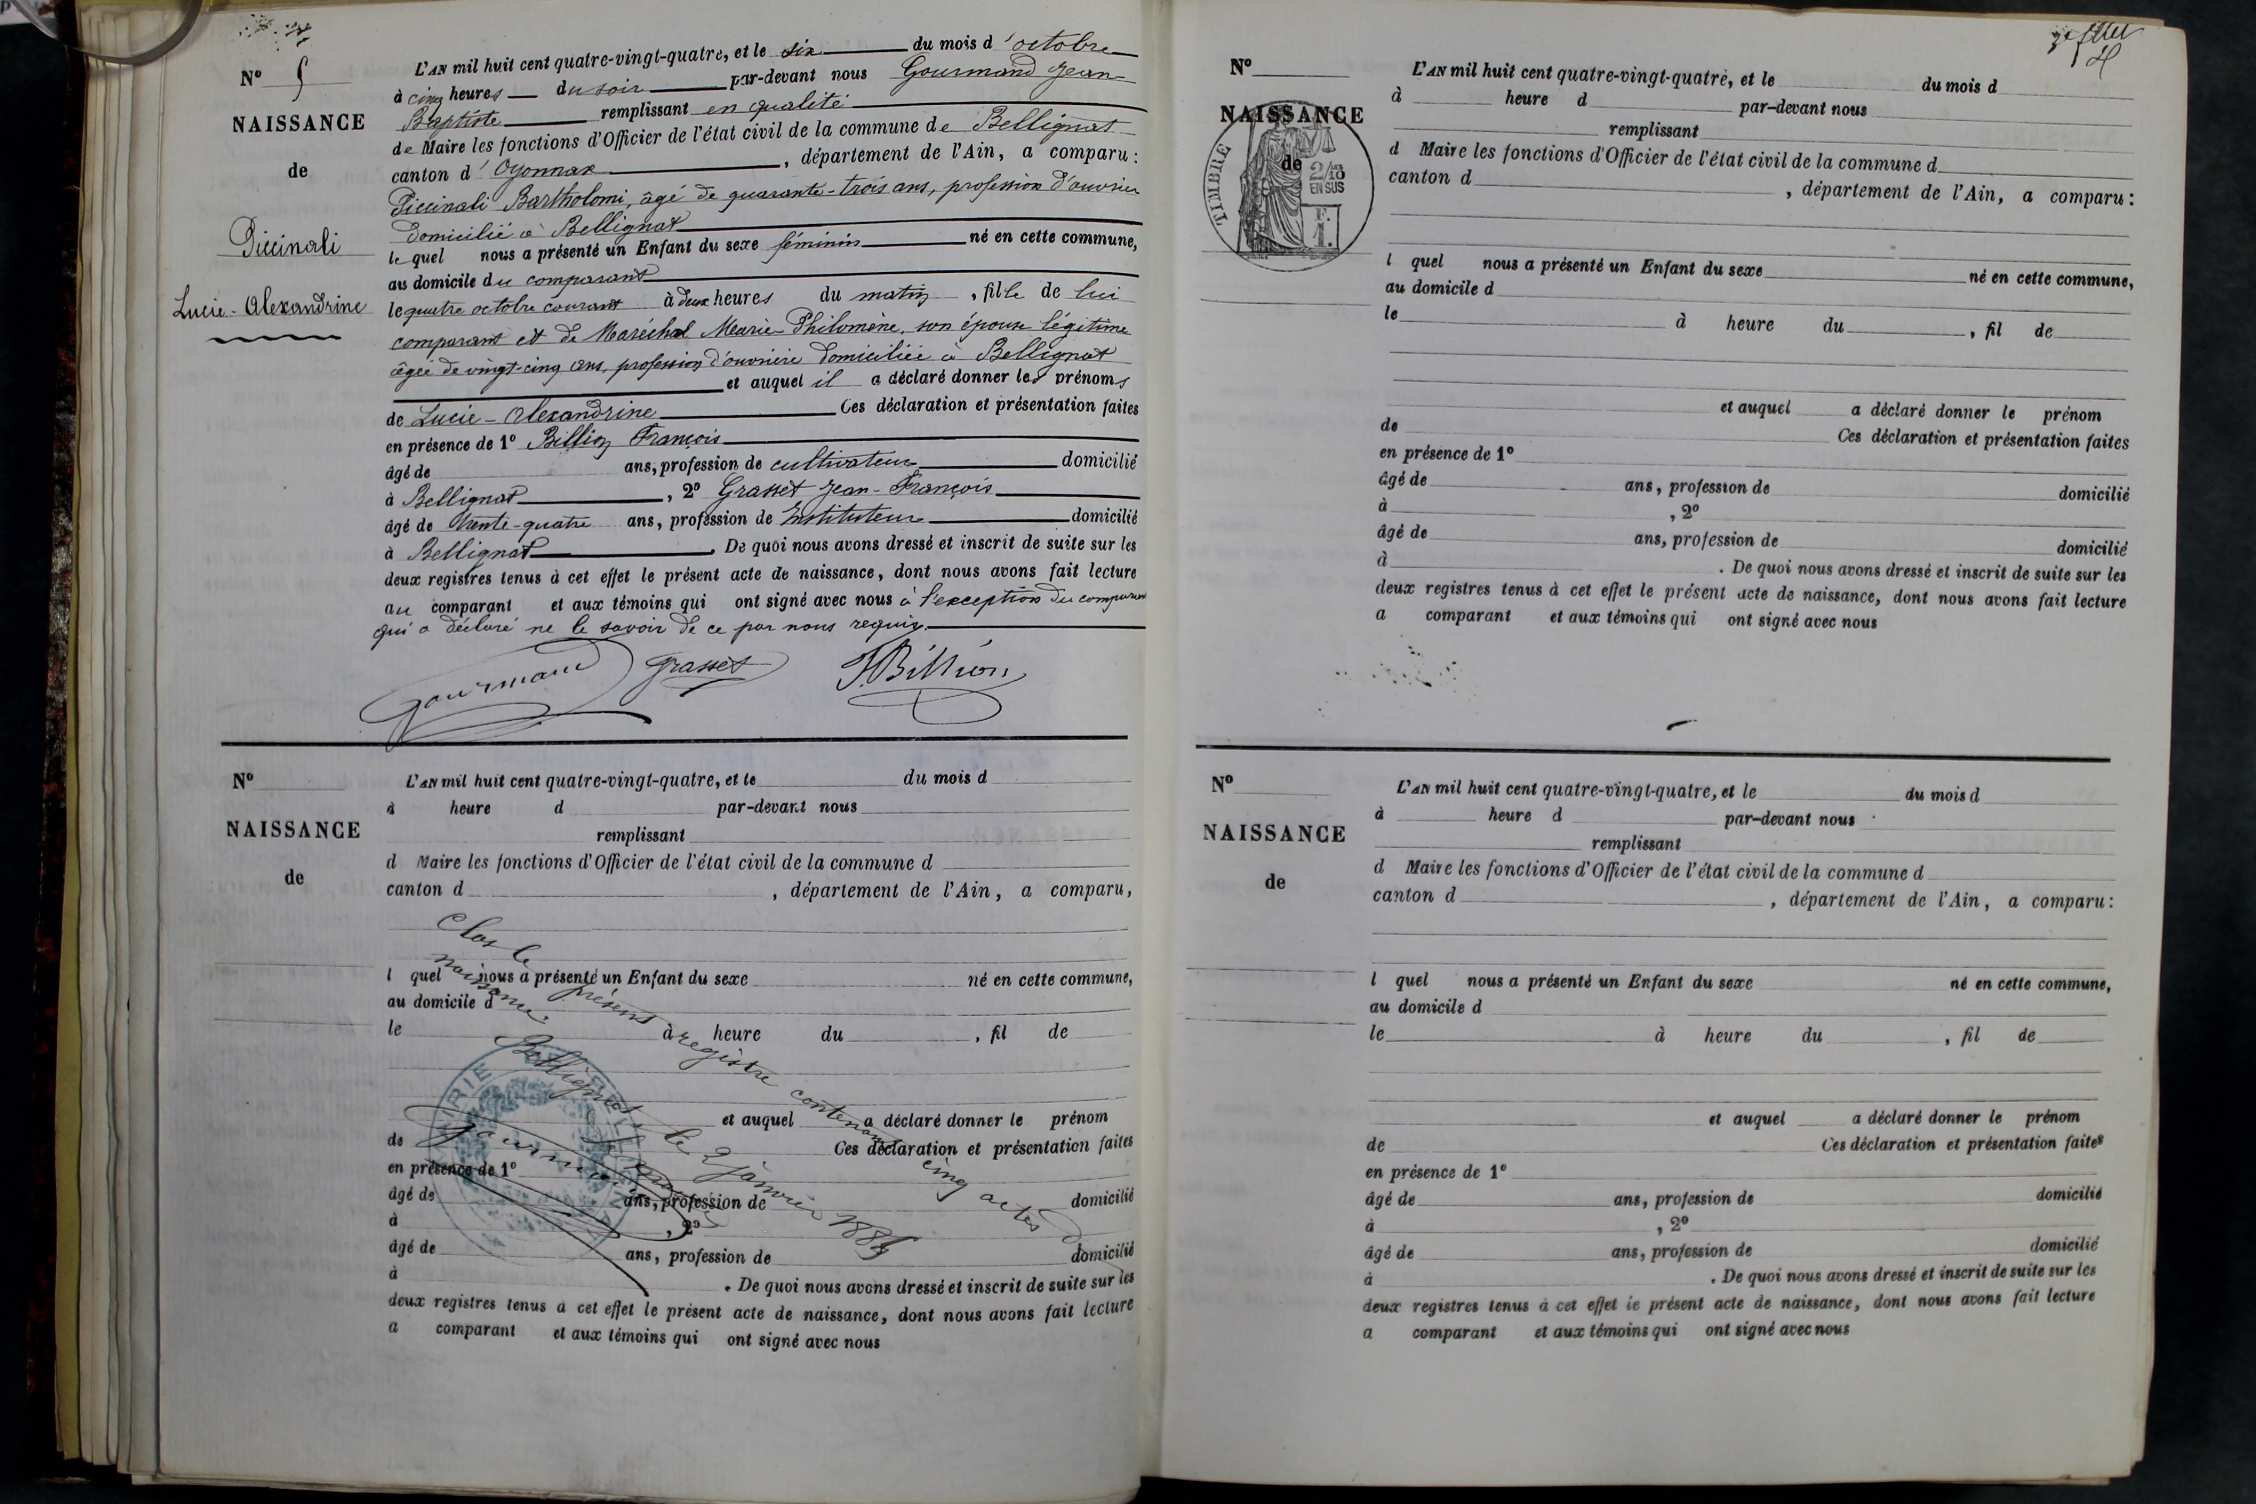 N° 5
NAISSANCE
de
Piccinali
Lucie-Alexandrine
L'AN mil huit cent quatre-vingt-quatre, et le six du mois d'octobre
à cinq heures du soir par-devant nous Gourmand Jean-
Baptiste remplissant en qualité
de Maire les fonctions d'Officier de l'état civil de la commune de Bellignat
canton d'Oyonnax, département de l'Ain, a comparu:
Piccinali Bartholomi, âgé de quarante-trois ans, profession d'ouvrier
domicilié à Bellignat
lequel nous a présenté un Enfant du sexe féminin né en cette commune,
au domicile du comparant
le quatre octobre courant à deux heures du matin, fille de lui
comparant et de Maréchal Marie-Philomène, son épouse légitime
âgée de vingt-cinq ans, profession d'ouvrière domiciliée à Bellignat
et auquel il a déclaré donner les prénoms
de Lucie-Alexandrine Ces déclaration et présentation faites
en présence de 1° Billion François
âgé de ans, profession de cultivateur domicilié
à Bellignat, 2° Grasset Jean-François
âgé de trente-quatre ans, profession de Instituteur domicilié
à Bellignat. De quoi nous avons dressé et inscrit de suite sur les
deux registres tenus à cet effet le présent acte de naissance, dont nous avons fait lecture
au comparant et aux témoins qui ont signé avec nous à l'exception du comparant
qui a déclaré ne le savoir de ce par nous requis.
Gourmand Grasset F. Billion
N°
NAISSANCE
de
L'AN mil huit cent quatre-vingt-quatre, et le du mois d
à heure d par-devant nous
remplissant
d Maire les fonctions d'Officier de l'état civil de la commune d
canton d , département de l'Ain, a comparu,
l quel nous a présenté un Enfant du sexe né en cette commune,
au domicile d
le à heure du , fil de
et auquel a déclaré donner le prénom
de Ces déclaration et présentation faites
en présence de 1°
âgé de ans, profession de domicilié
à , 2°
âgé de ans, profession de domicilié
à . De quoi nous avons dressé et inscrit de suite sur les
deux registres tenus à cet effet le présent acte de naissance, dont nous avons fait lecture
a comparant et aux témoins qui ont signé avec nous
Clos le présent registre contenant cinq actes de
naissance.
Bellignat le 2 janvier 1885
Gourmand
MAIRIE
N°
NAISSANCE
de
TIMBRE
2/10
EN SUS
F.
1.
L'AN mil huit cent quatre-vingt-quatre, et le du mois d
à heure d par-devant nous
remplissant
d Maire les fonctions d'Officier de l'état civil de la commune d
canton d , département de l'Ain, a comparu:
l quel nous a présenté un Enfant du sexe né en cette commune,
au domicile d
le à heure du , fil de
et auquel a déclaré donner le prénom
de Ces déclaration et présentation faites
en présence de 1°
âgé de ans, profession de domicilié
à , 2°
âgé de ans, profession de domicilié
à . De quoi nous avons dressé et inscrit de suite sur les
deux registres tenus à cet effet le présent acte de naissance, dont nous avons fait lecture
a comparant et aux témoins qui ont signé avec nous
N°
NAISSANCE
de
L'AN mil huit cent quatre-vingt-quatre, et le du mois d
à heure d par-devant nous
remplissant
d Maire les fonctions d'Officier de l'état civil de la commune d
canton d , département de l'Ain, a comparu:
l quel nous a présenté un Enfant du sexe né en cette commune,
au domicile d
le à heure du , fil de
et auquel a déclaré donner le prénom
de Ces déclaration et présentation faites
en présence de 1°
âgé de ans, profession de domicilié
à , 2°
âgé de ans, profession de domicilié
à . De quoi nous avons dressé et inscrit de suite sur les
deux registres tenus à cet effet le présent acte de naissance, dont nous avons fait lecture
a comparant et aux témoins qui ont signé avec nous